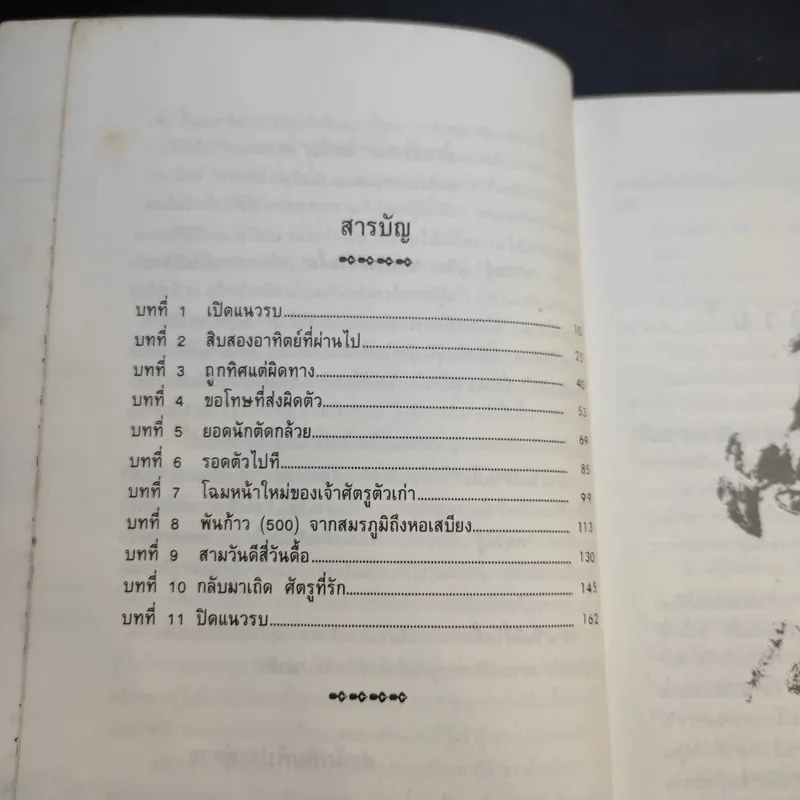 สารบัญ
บทที่ 1 เปิดแนวรบ 10
บทที่ 2 สิบสองอาทิตย์ที่ผ่านไป 25
บทที่ 3 ถูกทิศแต่ผิดทาง 40
บทที่ 4 ขอโทษที่ส่งผิดตัว 53
บทที่ 5 ยอดนักตัดกล้วย 69
บทที่ 6 รอดตัวไปที 85
บทที่ 7 โฉมหน้าใหม่ของเจ้าศัตรูตัวเก่า 99
บทที่ 8 พันก้าว (500) จากสมรภูมิถึงหอเสบียง 113
บทที่ 9 สามวันดีสี่วันดื้อ 130
บทที่ 10 กลับมาเถิด ศัตรูที่รัก 145
บทที่ 11 ปิดแนวรบ 162